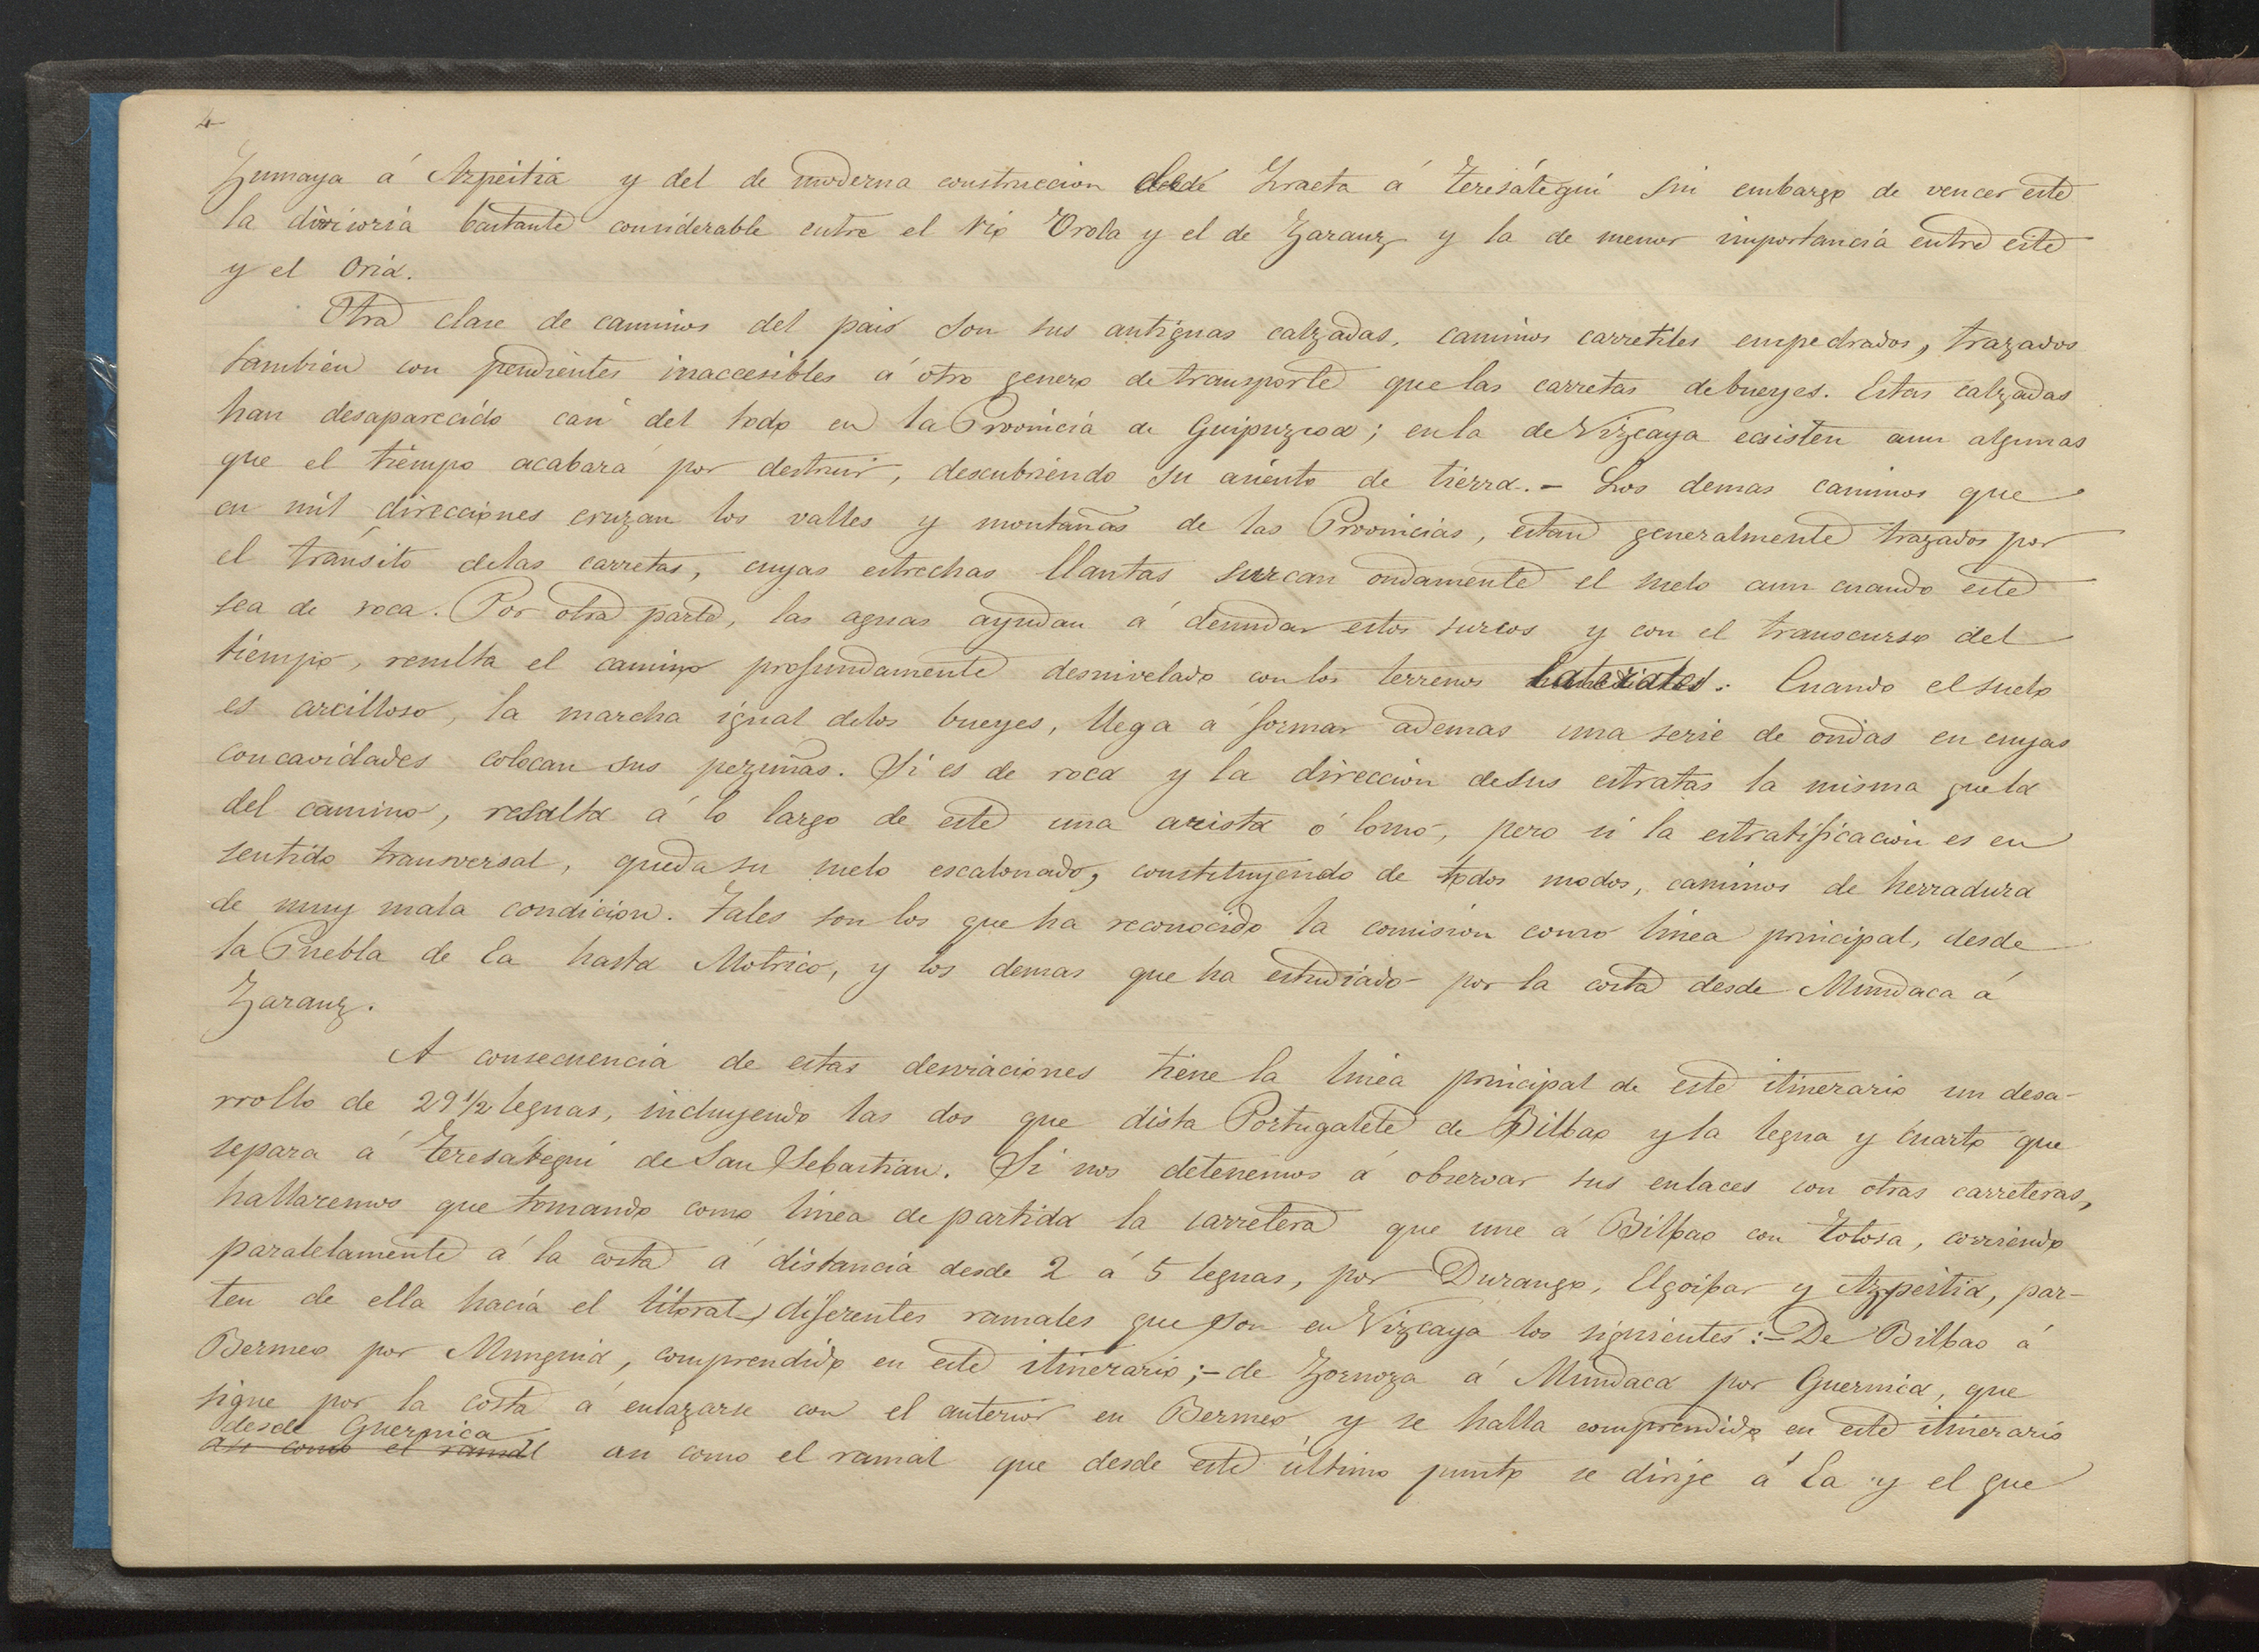 4
Zumaya á Azpeitia y del de moderna construccion desde Iraeta á Teresátegui sin embargo de vencer este
la divisoria bastante considerable entre el rio Orola y el de Zarauz, y la de menor importancia entre este
y el Oria.
Otra clase de caminos del pais son sus antiguas calzadas, caminos carretiles empedrados, trazados
tambien con pendientes inaccesibles á otro genero de transporte que las carretas de bueyes. Estas calzadas
han desaparecido casi del todo en la Provincia de Guipuzcoa; en la de Vizcaya ecsisten aun algunas
que el tiempo acabará por destruir, descubriendo su asiento de tierra. - Los demas caminos que
en mil direcciones cruzan los valles y montañas de las Provincias, estan generalmente trazados por
el tránsito de las carretas, cuyas estrechas llantas surcan ondamente el suelo aun cuando este
sea de roca. Por otra parte, las aguas ayudan á denudar estos surcos y con el transcurso del
tiempo, resulta el camino profundamente desnivelado con los terrenos laterales. Cuando el suelo
es arcilloso, la marcha igual de los bueyes, llega a formar ademas una serie de ondas en cuyas
concavidades colocan sus pezuñas. Si es de roca y la direccion de sus estratas la misma que la
del camino, resalta á lo largo de este una arista ó lomo, pero si la estratificacion es en
sentido transversal, queda su suelo escalonado, constituyendo de todos modos, caminos de herradura
de muy mala condicion. Tales son los que ha reconocido la comision como linea principal, desde
la Puebla de Ea hasta Motrico, y los demas que ha estudiado por la costa desde Mundaca á
Zarauz.
A consecuencia de estas desviaciones tiene la linea principal de este itinerario un desa-
rrollo de 29 1/2 leguas, incluyendo las dos que dista Portugalete de Bilbao y la legua y cuarto que
separa á Teresátegui de San Sebastian. Si nos detenemos á observar sus enlaces con otras carreteras,
hallaremos que tomando como linea de partida la carretera que une á Bilbao con Tolosa, corriendo
paralelamente á la costa á distancia desde 2 á 5 leguas, por Durango, Elgoibar y Azpeitia, par-
ten de ella hacia el litoral, diferentes ramales que son en Vizcaya los siguientes: - De Bilbao á
Bermeo por Munguia, comprendido en este itinerario; - de Zornoza á Mundaca por Guernica, que
sigue por la costa á enlazarse con el anterior en Bermeo y se halla comprendido en este itinerario
desde Guernica
asi como el ramal asi como el ramal que desde este último punto se dirije á Ea y el que